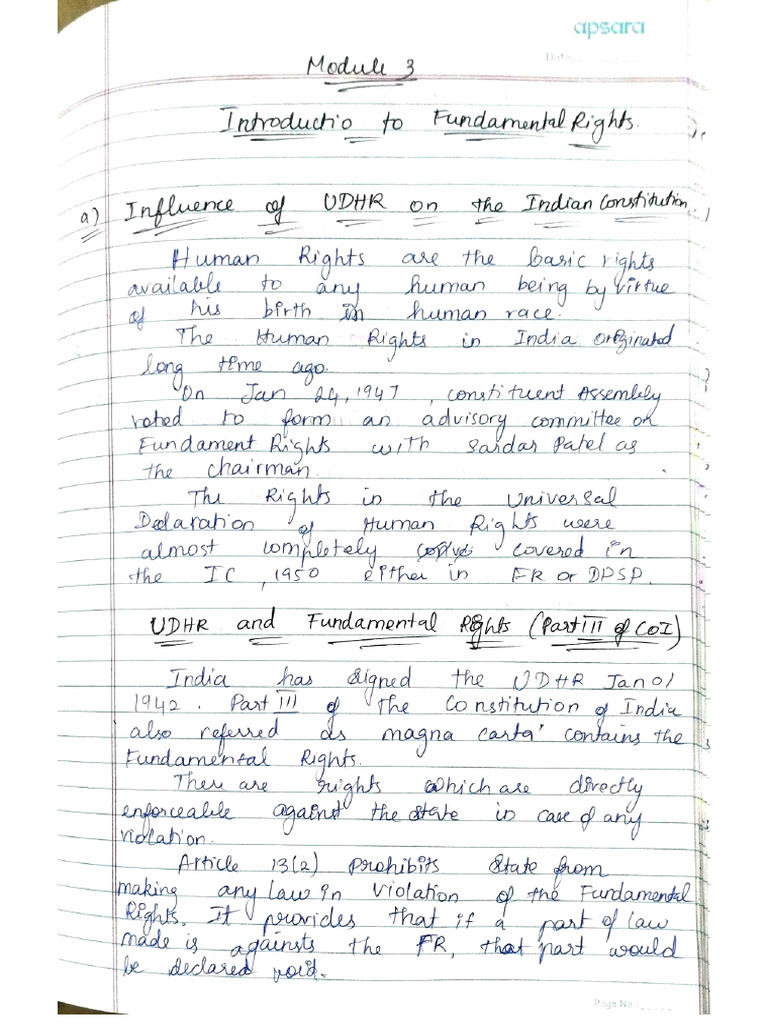 apsara
Date
Module 3
Introductio to Fundamental Rights.
a) Influence of UDHR on the Indian Constitution.
Human Rights are the basic rights
available to any human being by virtue
of his birth in human race.
The Human Rights in India originated
long time ago.
On Jan 24, 1947, constituent Assembly
voted to form an advisory committee on
Fundament Rights with Sardar Patel as
the chairman.
The Rights in the Universal
Declaration of Human Rights were
almost completely covered in
the IC, 1950 either in FR or DPSP.
UDHR and Fundamental Rights (Part III of COI)
India has signed the UDHR Jan 01
1942. Part III of The Constitution of India
also referred as magna carta' contains the
Fundamental Rights.
There are rights which are directly
enforceable against the state in case of any
violation.
Article 13(2) prohibits State from
making any law in violation of the Fundamental
Rights. It provides that if a part of law
made is againsts the FR, that part would
be declared void.
Page No.